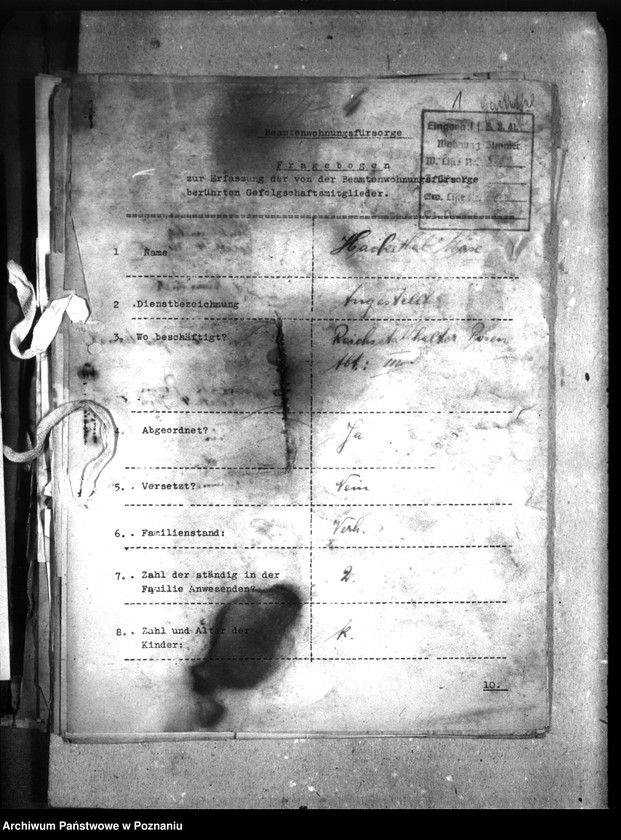 1
Beamtenwohnungsfürsorge
Fragebogen
zur Erfassung der von der Beamtenwohnungsfürsorge
berührten Gefolgschaftsmitglieder.
Wohnung Zimmer
1 Name
2 Dienstbezeichnung Angestellte
3. Wo beschäftigt? Reichsstatthalter Posen
Abt: III
Abgeordnet? Ja
5. Versetzt? Nein
6. Familienstand: Verh.
7. Zahl der ständig in der 2
Familie Anwesenden?
8. Zahl und Alter der k.
Kinder:
10.
Archiwum Państwowe w Poznaniu